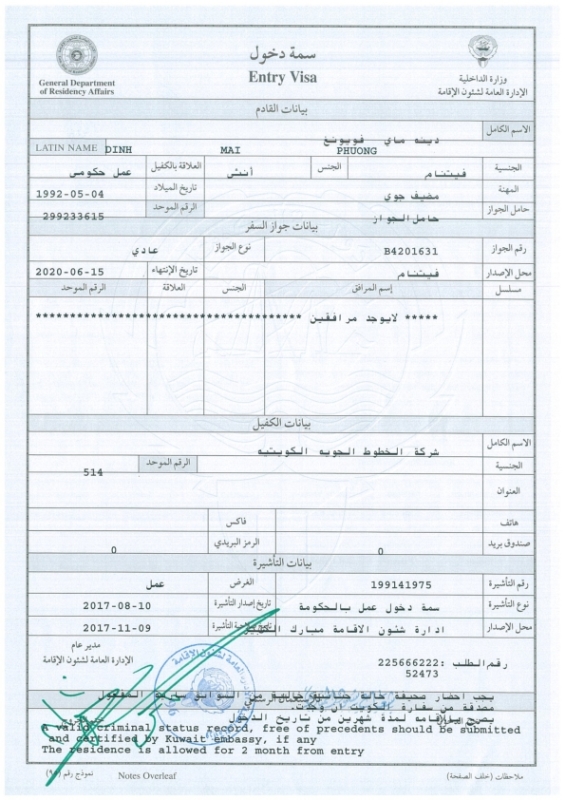 سمة دخول
Entry Visa
General Department
of Residency Affairs
وزارة الداخلية
الإدارة العامة لشئون الإقامة
بيانات القادم
الاسم الكامل
دينه ماي فويونغ
LATIN NAME DINH MAI PHUONG
الجنسية فيتنام الجنس أنثى العلاقة بالكفيل عمل حكومى
المهنة مضيف جوي تاريخ الميلاد 1992-05-04
حامل الجواز حامل الجواز الرقم الموحد 299233615
بيانات جواز السفر
رقم الجواز B4201631 نوع الجواز عادي
محل الإصدار فيتنام تاريخ الإنتهاء 2020-06-15
مسلسل إسم المرافق الجنس العلاقة الرقم الموحد
***** لايوجد مرافقين **********************************
بيانات الكفيل
الاسم الكامل شركة الخطوط الجويه الكويتيه
الجنسية الرقم الموحد 514
العنوان
هاتف فاكس
صندوق بريد 0 الرمز البريدي 0
بيانات التأشيرة
رقم التأشيرة 199141975 الغرض عمل
نوع التأشيرة سمة دخول عمل بالحكومة تاريخ إصدار التأشيرة 2017-08-10
محل الإصدار ادارة شئون الاقامة مبارك الكبير التأشيرة 2017-11-09
رقم الطلب: 225666222
52473
مدير عام
الإدارة العامة لشئون الإقامة
يجب احضار صحيفة حالة جنائية خالية من السوابق
مصدقة من سفارة الكويت ان وجدت.
يصرح بالاقامه لمدة شهرين من تاريخ الدخول
A valid criminal status record, free of precedents should be submitted
and certified by Kuwait embassy, if any
The residence is allowed for 2 month from entry
ملاحظات (خلف الصفحة)
Notes Overleaf
نموذج رقم